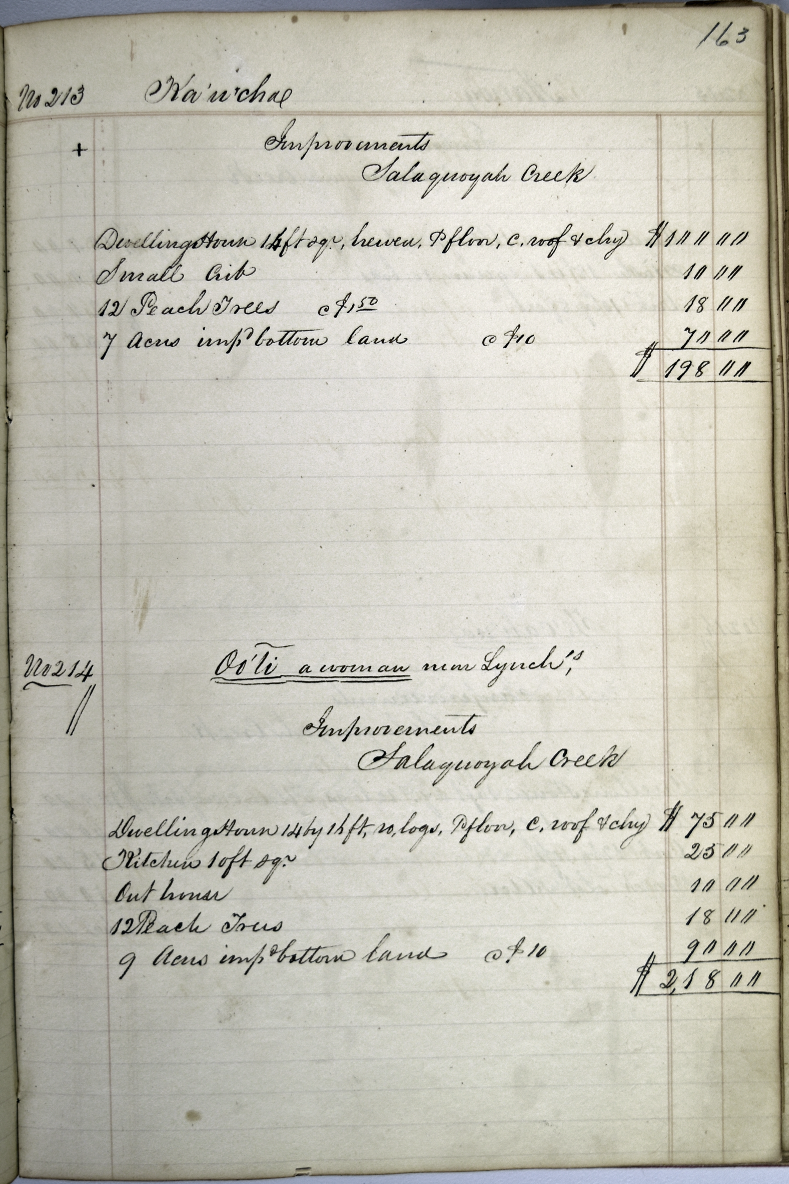 163
No 213 Ka'u'chae
+ Improvements
Salaquoyah Creek
Dwelling House 14 ft sqr, hewed, P floor, c. roof & chy $ 100 00
Small Crib 10 00
12 Peach Trees @ $1 50 18 00
7 Acres impd bottom land @ $10 70 00
$ 198 00
No 214 Oo'ti a woman near Lynch's,
Improvements
Salaquoyah Creek
Dwelling House 14 by 16 ft, ro, logs, P floor, c. roof & chy $ 75 00
Kitchen 10 ft sqr 25 00
Out house 10 00
12 Peach Trees 18 00
9 Acres impd bottom land @ $10 90 00
$ 218 00